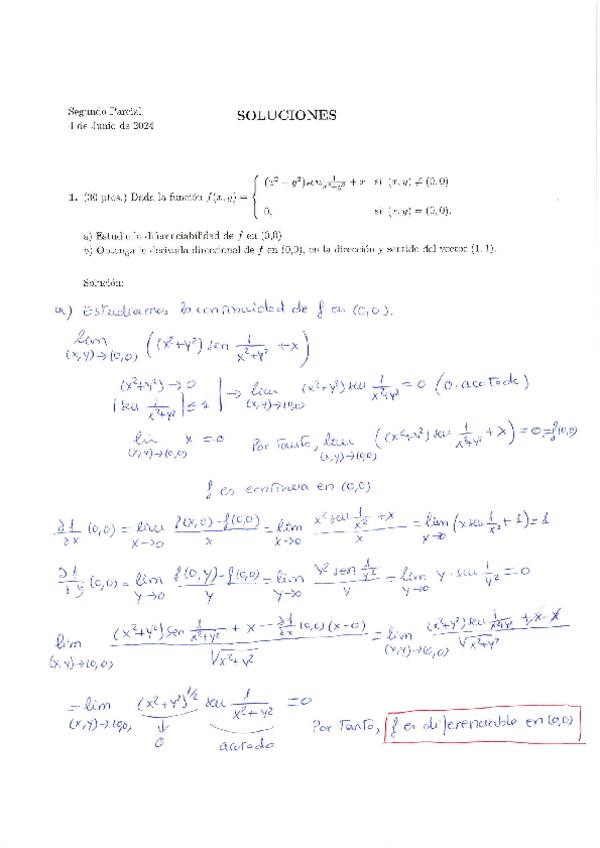 Segundo Parcial
4 de Junio de 2024
SOLUCIONES
1. (30 ptos.) Dada la función f(x, y) = { (x² + y²) sen 1/(x²+y²) + x si (x, y) ≠ (0,0)
0, si (x, y) = (0,0).
a) Estudie la diferenciabilidad de f en (0,0)
b) Obtenga la derivada direccional de f en (0,0), en la dirección y sentido del vector (1,1).
Solución:
a) Estudiamos la continuidad de f en (0,0).
lim (x,y)→(0,0) ((x²+y²) sen 1/(x²+y²) + x)
(x²+y²) → 0
|sen 1/(x²+y²)| ≤ 1 | → lim (x,y)→(0,0) (x²+y²) sen 1/(x²+y²) = 0 (0·acotado)
lim (x,y)→(0,0) x = 0 Por tanto, lim (x,y)→(0,0) ((x²+y²) sen 1/(x²+y²) + x) = 0 = f(0,0)
f es continua en (0,0)
∂f/∂x (0,0) = lim x→0 (f(x,0) - f(0,0))/x = lim x→0 (x² sen 1/x² + x)/x = lim x→0 (x sen 1/x² + 1) = 1
∂f/∂y (0,0) = lim y→0 (f(0,y) - f(0,0))/y = lim y→0 (y² sen 1/y²)/y = lim y→0 y · sen 1/y² = 0
lim (x,y)→(0,0) ((x²+y²) sen 1/(x²+y²) + x - ∂f/∂x (0,0)(x-0))/√(x²+y²) = lim (x,y)→(0,0) ((x²+y²) sen 1/(x²+y²) + x - x)/√(x²+y²)
= lim (x,y)→(0,0) (x²+y²)^1/2 sen 1/(x²+y²) = 0
↓ 0 acotado
Por tanto, f es diferenciable en (0,0)